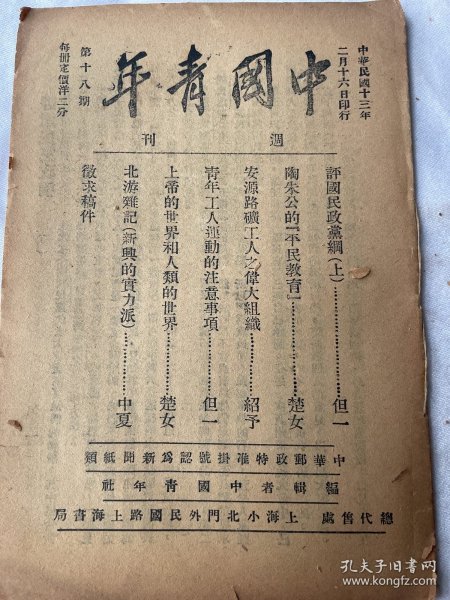 中華民國十三年
二月十六日印行
中國青年
週刊
第十八期
每冊定價洋二分
評國民政黨綱(上)………………但一
陶朱公的『平民教育』………………楚女
安源路礦工人之偉大組織…………紹予
靑年工人運動的注意事項…………但一
上帝的世界和人類的世界…………楚女
北游雜記(新興的實力派)…………中夏
徵求稿件
中華郵政特准掛號認爲新聞紙類
編輯者中國靑年社
總代售處 上海小北門外民國路上海書局
孔夫子旧书网
book.kongfz.com